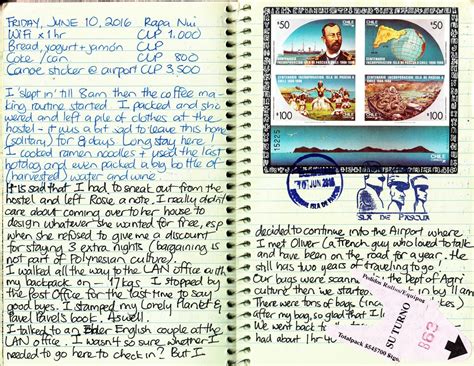 FRIDAY, JUNE 10, 2016 Rapa Nui
WIFI x 1hr CLP 1.000
Bread, yogurt + jamón CLP
Coke /can CLP 800
Canoe sticker @ airport CLP 3,500
I 'slept in' till 8am then the coffee ma-
king routine started. I packed and sho
wered and left a pile of clothes at the
hostel - it was a bit sad to leave this home
(solitary) for 8 days (long stay here)
I cooked ramen noodles + used the last
hotdog and even packed a big bottle of
(harvested) water and wine.
It is sad that I had to sneak out from the
hostel and left Rosie a note. I really didn't
care about coming over to her house to
design whatever she wanted for free, esp
when she refused to give me a discount
for staying 3 extra nights (bargaining is
not part of Polynesian culture).
I walked all the way to the LAN office with
my backpack on - 17kgs. I stopped by
the Post Office for the last time to say
good byes. I stamped my Lonely Planet &
Pavel Pavel's book 4 swell.
I talked to an Elder English couple at the
LAN office. I wasn't so sure whether I
needed to go here to check in? But I
$50 CHILE
$50 CHILE
CENTENARIO INCORPORACION ISLA DE PASCUA A CHILE 1888-1988
$100 CHILE
$100 CHILE
15225
CHILE
07 JUN 2016
ISLA DE PASCUA
decided to continue into the Airport where
I met Oliver (a French guy who loved to talk
and have been on the road for a year. He
still has two years of traveling to go!
Our bags were scanned
the Dept of Agri
culture then we started
There were tons of bags
after my bag, so glad that I
We went back
had about 1hr
SU TURNO
862